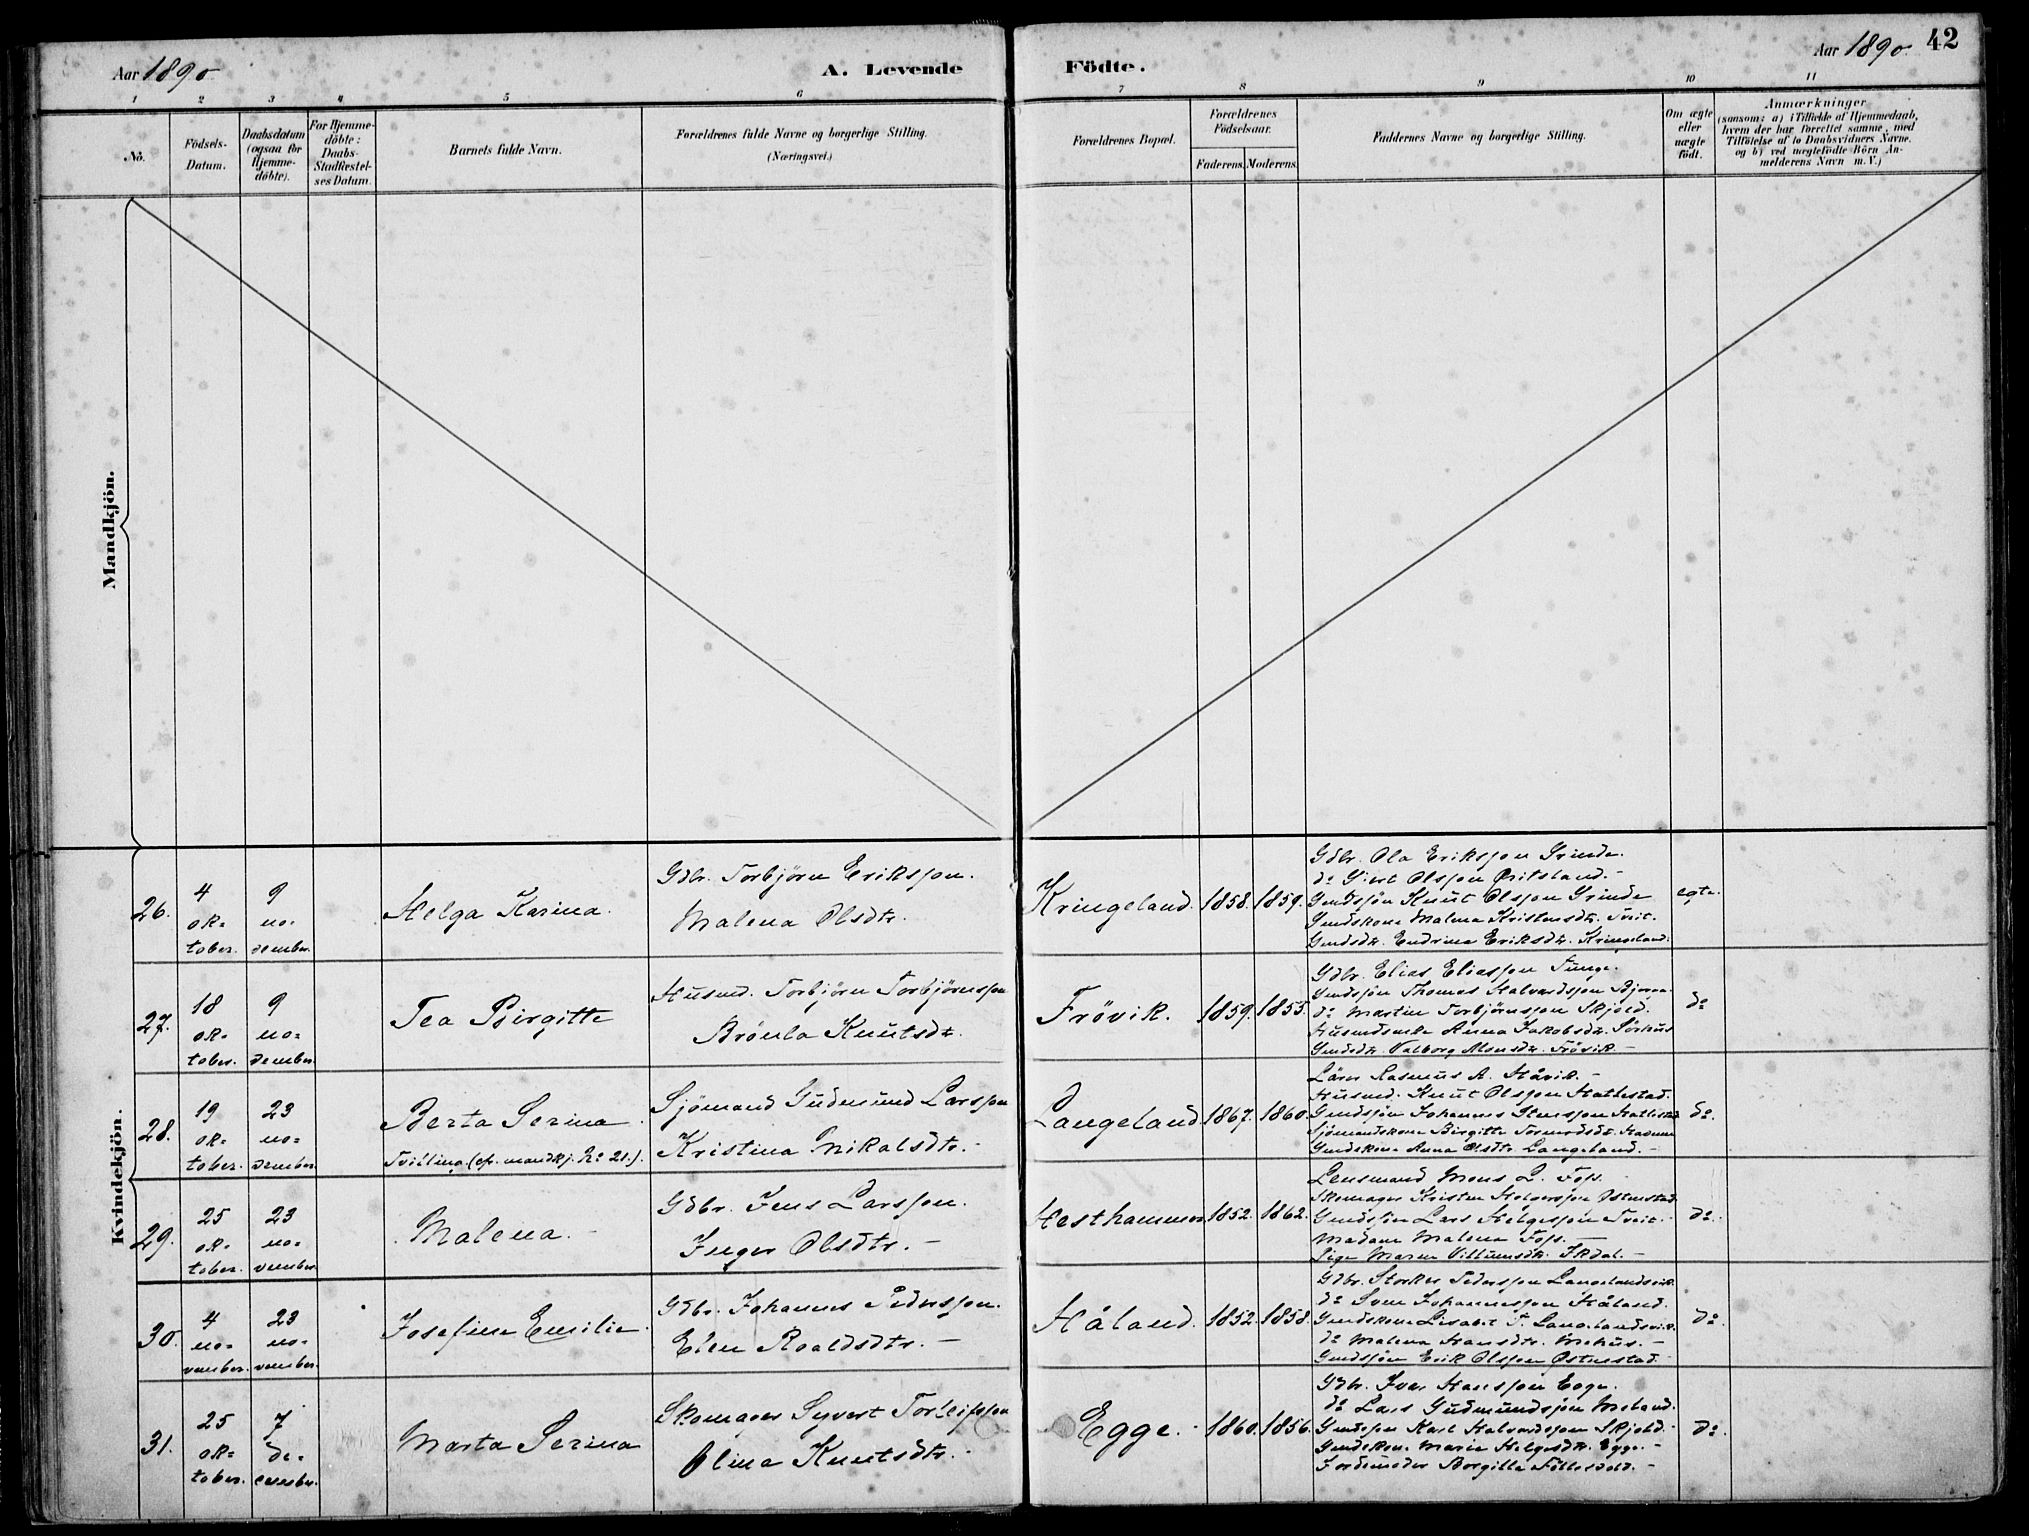 Aar 1890.
A. Levende
1 2 3 4 5 6
No.
Födsels-
Datum.
Daabsdatum
(ogsaa for
Hjemme-
döbte).
For Hjemme-
döbte:
Daabs-
Stadfæstel-
ses Datum.
Barnets fulde Navn.
Forældrenes fulde Navne og borgerlige Stilling.
(Næringsvei.)
Födte.
Aar 1890. 42
7 8 9 10 11
Forældrenes Bopæl.
Forældrenes
Födselsaar.
Faderens. Moderens.
Faddernes Navne og borgerlige Stilling.
Om ægte
eller
uægte
födt.
Anmærkninger
(saasom: a) i Tilfælde af Hjemmedaab,
hvem der har forrettet samme, med
Tilföielse af to Daabsvidners Navne,
og b) ved uægtefödte Börn An-
melderens Navn m.V.)
Mandkjön.
Kvindekjön.
26.
4
ok-
tober.
9
no-
vember.
Helga Karina.
Gdbr. Torbjörn Eriksson.
Malena Olsdtr.
Kringeland. 1858. 1859.
Gdbr. Ola Eriksson Grinde.
do Olsson
Gmdssön Knut Olsson Grinde
Gmdskone Malena Kristensdtr. Tveit.
Gmdsdtr. Endrina Eriksdtr. Kringeland.
egte.
27.
18
ok-
tober.
9
no-
vember.
Tea Birgitte
Husmd. Torbjörn Torbjörnsson
Brönla Knutsdtr.
Frövik. 1859. 1855.
Gdbr. Elias Eliasson Tunge.
Gmdssön Thomas Halvardsson
do Martin Torbjörnsson Skjold.
Anna Jakobsdtr.
Gmdsdtr. Valborg Monsdtr. Frövik.
do
28.
19
ok-
tober.
23
no-
vember.
Berta Serina.
Tvilling (cfr. mandkj. No 21.).
Sjömand Gudmund Larsson
Kristina Nikolsdtr.
Langeland 1867. 1860.
Lärer Rasmus A. Håvik.
Husmd. Knut Olsson Hatlestad.
Gmdssön Johannes Hatlestad
Sjömandskone Birgitte
Gmdskone Anna Olsdtr. Langeland.
do.
29.
25
ok-
tober.
23
no-
vember.
Malena.
Gdbr. Jens Larsson.
Inger Olsdtr.
Hesthammer 1852. 1862.
Lensmand Mons L. Fos.
Skomager Kristen Helgesson Östenstad.
Gmdssön Lars Helgesson Tveit.
Madam Malena Fos.
Pige Maren Villumsdtr.
do.
30.
4
no-
vember.
23
no-
vember.
Josefine Emilie.
Gdbr. Johannes Pedersson.
Elen Roaldsdtr.
Håland. 1852. 1858.
Gdbr. Storker Pedersson Langelandsvik.
do Sven Johannesson Håland.
Gmdskone Lisabet T. Langelandsvik.
do Malena Hansdtr. Mehus.
Gmdssön Erik Olsson Östenstad.
do.
31.
25
ok-
tober.
7
de-
cember.
Marta Serina
Skomager Syvert Torleifsson
Olina Knutsdtr.
Egge. 1860. 1856.
Gdbr. Ivar Hansson Egge.
do Lars Gudmundsson Meland.
Gmdssön Karl Halvardsson Skjold.
Gmdskone Marie Helgesdtr. Egge.
Jordemoder Borgilla
do.